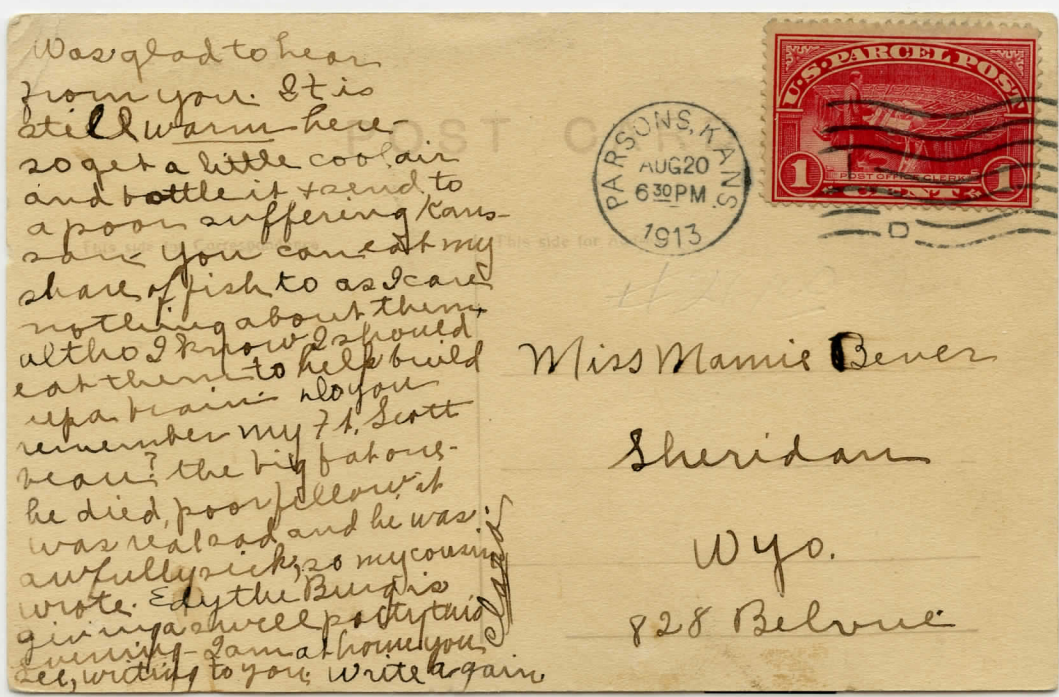 Was glad to hear
from you. It is
still warm here-
so get a little cool air
and bottle it + send to
a poor suffering Kans-
san. You can eat my
share of fish to as I care
nothing about them,
altho I know I should
eat them to help build
up a brain. Do you
remember my Ft. Scott
beau? the big fat one-
he died, poor fellow, it
was real sad and he was
awfully sick, so my cousin
wrote. Edythe Burg is
giving a swell party this
evening - I am at home you
see, writing to you. Write again
POST
This side for Correspondence
This side for
PARSONS, KANS.
AUG 20
6 30 PM
1913
U.S. PARCEL POST
1 POST OFFICE CLERK 1
CENT
D
Miss Mamie Bever
Sheridan
Wyo.
828 Belvue